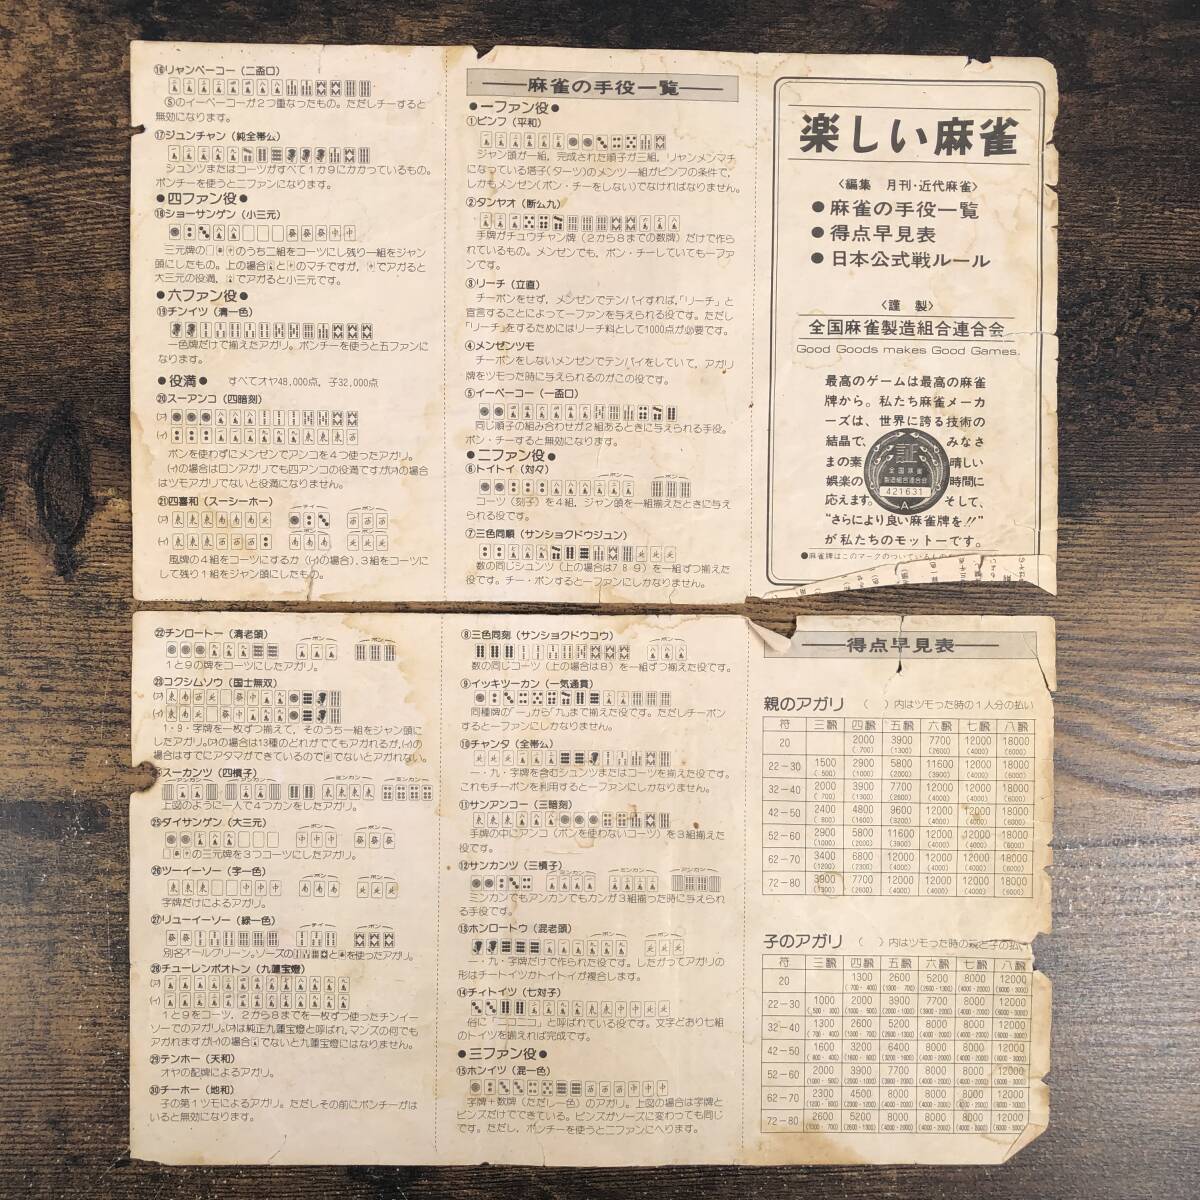 楽しい麻雀
〈編集 月刊・近代麻雀〉
●麻雀の手役一覧
●得点早見表
●日本公式戦ルール
〈謹製〉
全国麻雀製造組合連合会
Good Goods makes Good Games.
最高のゲームは最高の麻雀
牌から。私たち麻雀メーカ
ーズは、世界に誇る技術の
結晶で、みなさ
まの素晴しい
娯楽の時間に
応えます。そして、
“さらにより良い麻雀牌を!!”
が私たちのモットーです。
全国麻雀
製造組合連合会
421631
A
麻雀の手役一覧
●一ファン役●
①ピンフ(平和)
ジャン頭が一組,完成された順子が三組,リャンメンマチ
になっている塔子(ターツ)のメンツ一組がピンフの条件で,
しかもメンゼン(ポン・チーをしない)でなければなりません。
②タンヤオ(断么九)
手牌がチュウチャン牌(2から8までの数牌)だけで作ら
れているもの。メンゼンでも,ポン・チーしていても一ファン
です。
③リーチ(立直)
チーポンをせず,メンゼンでテンパイすれば,「リーチ」と
宣言することによって一ファンを与えられる役です。ただし
「リーチ」をするためにはリーチ料として1000点が必要です。
④メンゼンツモ
チーポンをしないメンゼンでテンパイをしていて,アガリ
牌をツモった時に与えられるのがこの役です。
⑤イーペーコー(一盃口)
同じ順子の組み合わせが2組あるときに与えられる手役。
ポン・チーすると無効になります。
●二ファン役●
⑥トイトイ(対々)
コーツ(刻子)を4組,ジャン頭を一組揃えたときに与え
られる役です。
⑦三色同順(サンショクドウジュン)
数の同じシュンツ(上の場合は789)を一組ずつ揃えた
役です。チー・ポンすると一ファンにしかなりません。
⑧三色同刻(サンショクドウコウ)
数の同じコーツ(上の場合は8)を一組ずつ揃えた役です。
⑨イッキツーカン(一気通貫)
同種牌の「一」から「九」まで揃えた役です。ただしチーポン
すると一ファンにしかなりません。
⑩チャンタ(全帯么)
一・九・字牌を含むシュンツまたはコーツを揃えた役です。
これもチーポンを利用すると一ファンにしかなりません。
⑪サンアンコー(三暗刻)
手牌の中にアンコ(ポンを使わないコーツ)を3組揃えた
役です。
⑫サンカンツ(三槓子)
ミンカン
ミンカン
アンカン
ミンカンでもアンカンでもカンが3組揃った時に与えられ
る手役です。
⑬ホンロートウ(混老頭)
一・九・字牌だけで作られた役です。したがってアガリの
形はチートイツかトイトイが複合します。
⑭チィトイツ(七対子)
俗に「ニコニコ」と呼ばれている役です。文字どおり七組
のトイツを揃えれば完成です。
●三ファン役●
⑮ホンイツ(混一色)
字牌+数牌(ただし一色)のアガリ。上図の場合は字牌と
ピンズだけでできている。ピンズがソーズに変わっても同じ
です。ただし,ポンチーを使うと二ファンにへります。
⑯リャンペーコー(二盃口)
⑤のイーペーコーが2つ重なったもの。ただしチーすると
無効になります。
⑰ジュンチャン(純全帯么)
シュンツまたはコーツがすべて1か9にかかっているもの。
ポンチーを使うと二ファンになります。
●四ファン役●
⑱ショーサンゲン(小三元)
●六ファン役●
⑲チンイツ(清一色)
一色牌だけで揃えたアガリ。ポンチーを使うと五ファンに
なります。
●役満● すべてオヤ48,000点,子32,000点
⑳スーアンコ(四暗刻)
(ア)
(イ)
ポンを使わずにメンゼンでアンコを4つ使ったアガリ。
(イ)の場合はロンアガリでも四アンコの役満ですが(ア)の場合
はツモアガリでないと役満になりません。
㉑四喜和(スーシーホー)
風牌の4組をコーツにするか((イ)の場合),3組をコーツに
して残り1組をジャン頭にしたもの。
㉒チンロートー(清老頭)
1と9の牌をコーツにしたアガリ。
㉓コクシムソウ(国士無双)
1・9・字牌を一枚ずつ揃えて,そのうち一組をジャン頭に
したアガリ。(ア)の場合は13種のどれがでてもアガれるが,(イ)の
スーカンツ(四槓子)
アンカン
アンカン
ミンカン
ミンカン
上図のように一人で4つカンをしたアガリ。
㉕ダイサンゲン(大三元)
の三元牌を3つコーツにしたアガリ。
㉖ツーイーソー(字一色)
字牌だけによるアガリ。
㉗リューイーソー(緑一色)
㉘チューレンポオトン(九蓮宝燈)
1と9をコーツ,2から8までを一枚ずつ使ったチンイー
ソーでのアガリ。(ア)は純正九蓮宝燈と呼ばれ,マンズの何でも
㉙テンホー(天和)
オヤの配牌によるアガリ。
㉚チーホー(地和)
子の第1ツモによるアガリ。ただしその前にポンチーがは
いると無効になります。
得点早見表
親のアガリ ( )内はツモった時の1人分の払い
符 三飜 四飜 五飜 六飜 七飜 八飜
20 2000 3900 7700 12000 18000
22-30 1500 2900 5800 11600 12000 18000
32-40 2000 3900 7700 12000 12000 18000
42-50 2400 4800 9600 12000 12000 18000
52-60 2900 5800 11600 12000 12000 18000
62-70 3400 6800 12000 12000 12000 18000
72-80 3900 7700 12000 12000 12000 18000
子のアガリ ( )内はツモった時の親と子の払い
符 三飜 四飜 五飜 六飜 七飜 八飜
20 1300 2600 5200 8000 12000
22-30 1000 2000 3900 7700 8000 12000
32-40 1300 2600 5200 8000 8000 12000
42-50 1600 3200 6400 8000 8000 12000
52-60 2000 3900 7700 8000 8000 12000
62-70 2300 4500 8000 8000 8000 12000
72-80 2600 5200 8000 8000 8000 12000